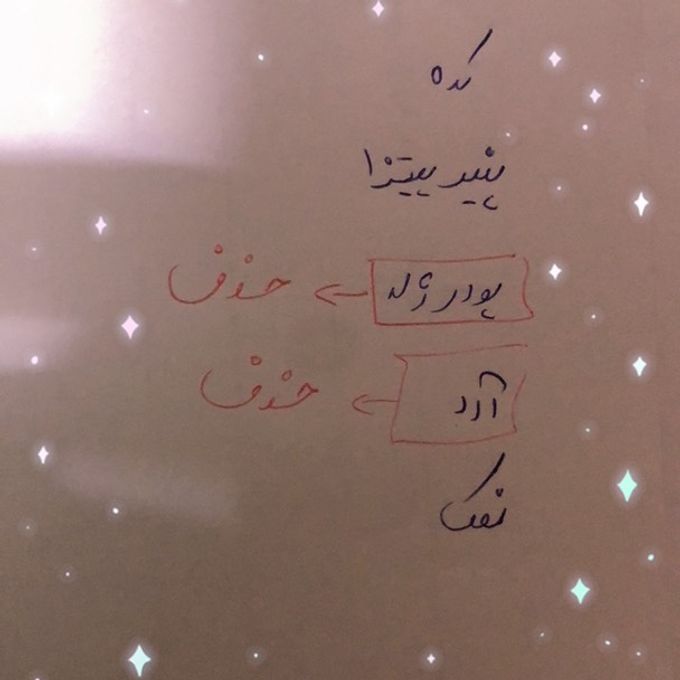 کره
پنیر پیتزا
پودر ژله ← حذف
آرد ← حذف
نمک